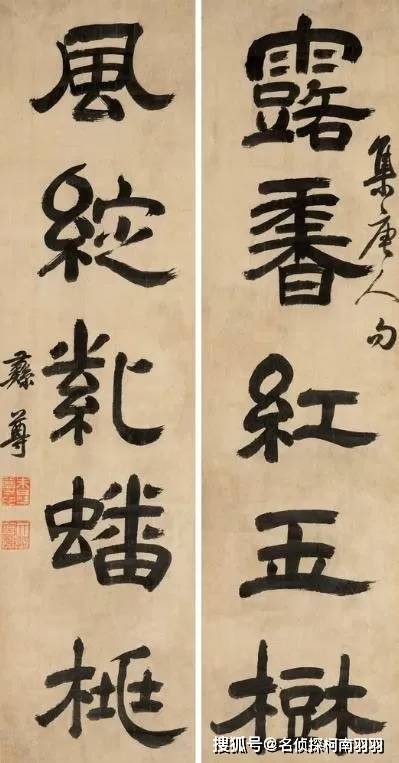 露香紅玉樹
集唐人句
風綻紫蟠桃
彝尊
搜狐号@名侦探柯南羽羽